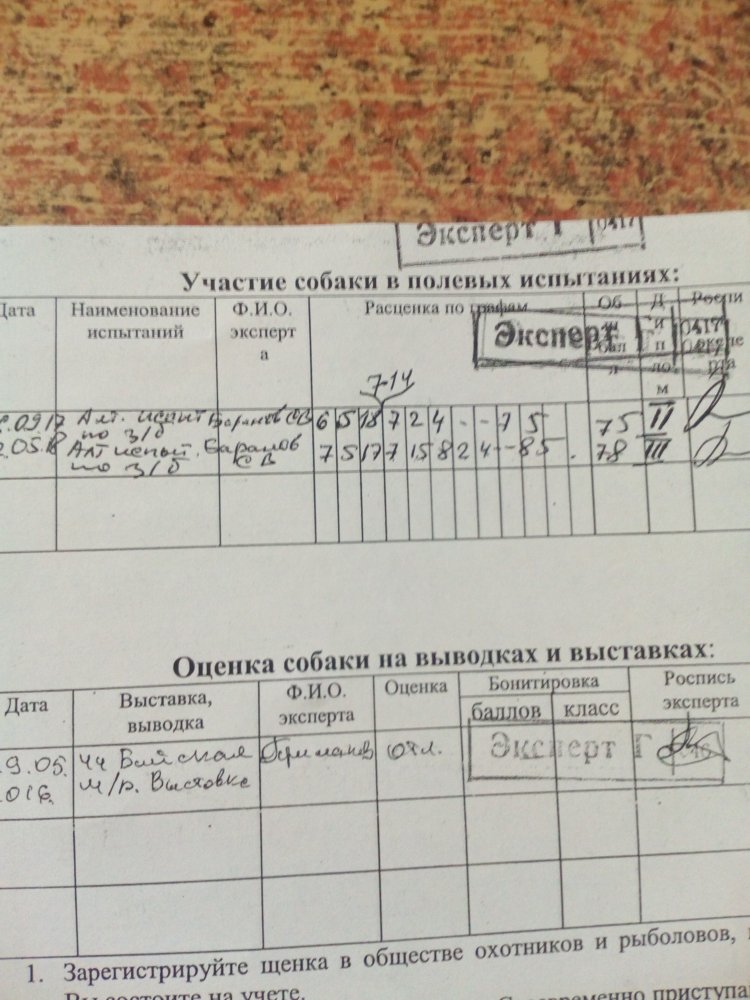 Эксперт Г 0417
Участие собаки в полевых испытаниях:
Дата Наименование испытаний Ф.И.О. эксперт а Расценка по графам Об щ бал л Д и п ло м Роспи
Эксперт Г 0417
7-14
.09.17 Алт. испыт по з/б Баранов СВ 6 5 18 7 2 4 - - 7 5 75 II
.05.18 Алт испыт. по з/б Баранов СВ 7 5 17 7 15 8 2 4 - - 8 5 . 78 III
Оценка собаки на выводках и выставках:
Дата Выставка, выводка Ф.И.О. эксперта Оценка Бонитировка Роспись эксперта
баллов класс
9.05. 016 Бийская м/р. Выставка отл.
Эксперт Г
1. Зарегистрируйте щенка в обществе охотников и рыболовов,
Вы состоите на учете.